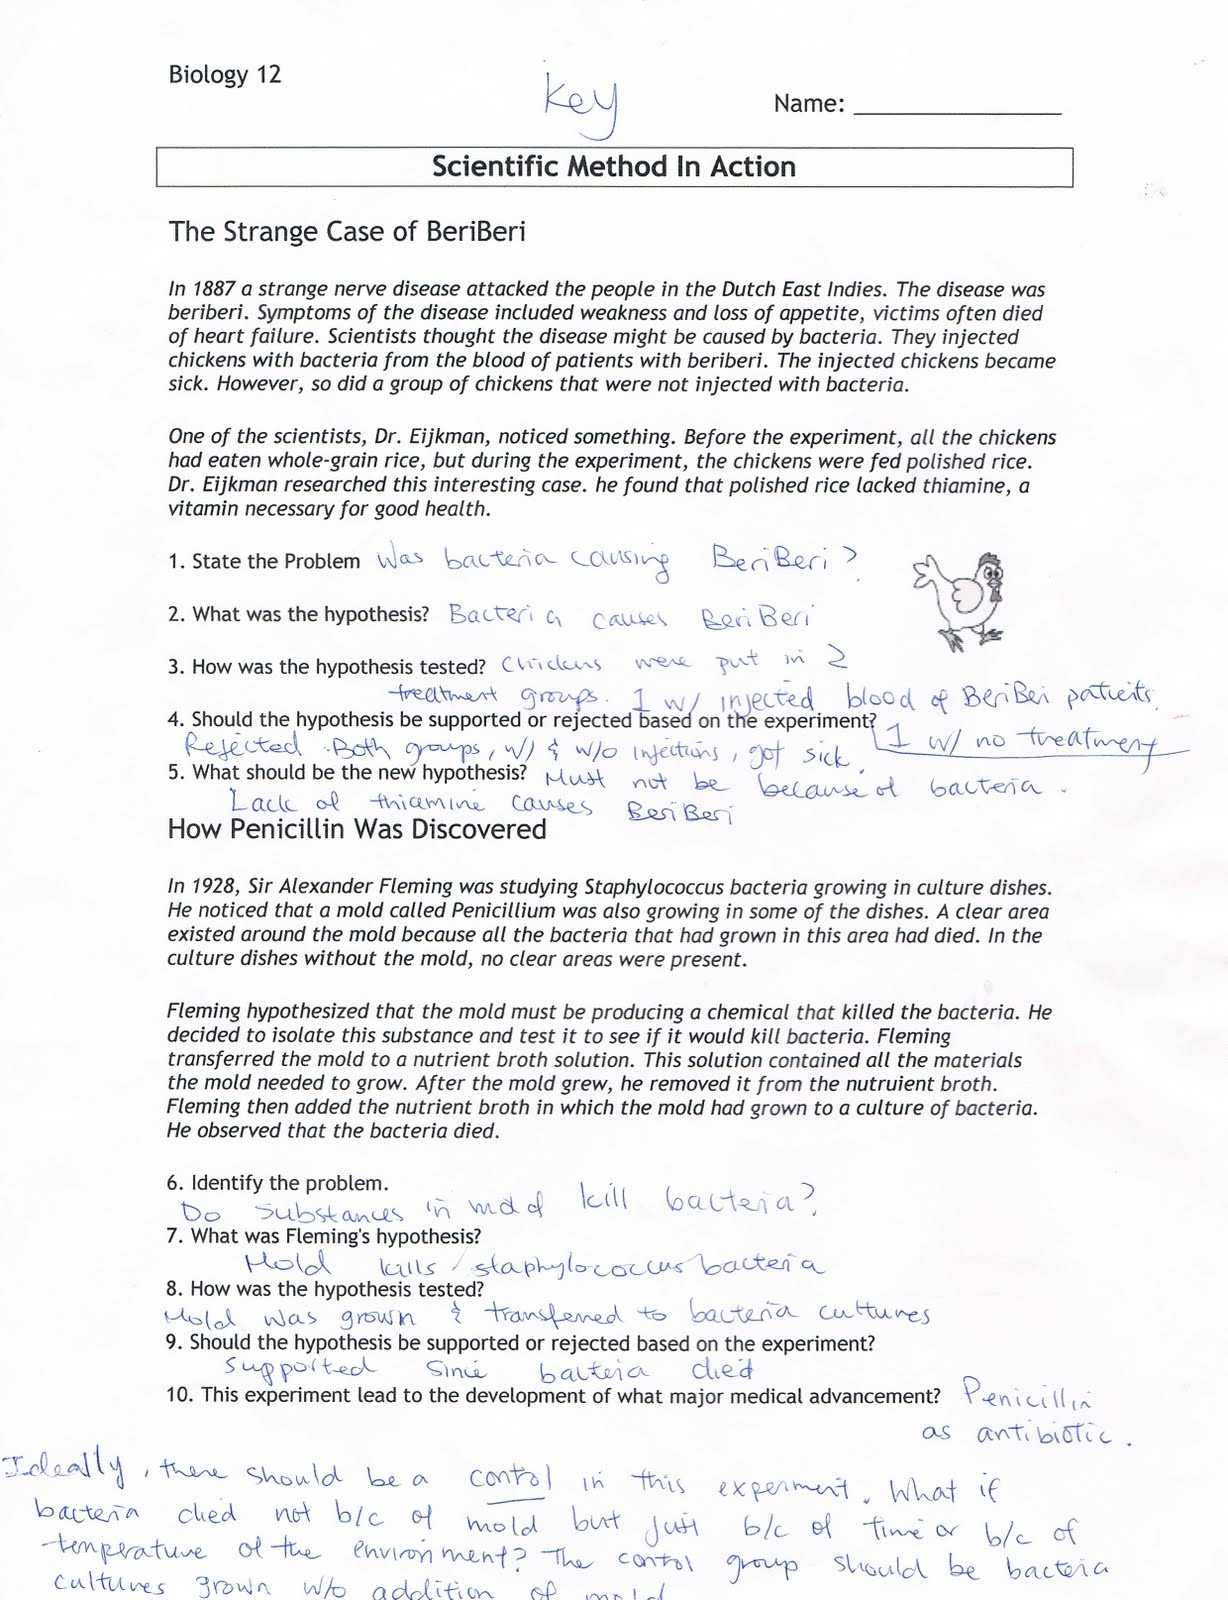 Biology 12
Key
Name: ________________
Scientific Method In Action
The Strange Case of BeriBeri
In 1887 a strange nerve disease attacked the people in the Dutch East Indies. The disease was
beriberi. Symptoms of the disease included weakness and loss of appetite, victims often died
of heart failure. Scientists thought the disease might be caused by bacteria. They injected
chickens with bacteria from the blood of patients with beriberi. The injected chickens became
sick. However, so did a group of chickens that were not injected with bacteria.
One of the scientists, Dr. Eijkman, noticed something. Before the experiment, all the chickens
had eaten whole-grain rice, but during the experiment, the chickens were fed polished rice.
Dr. Eijkman researched this interesting case. he found that polished rice lacked thiamine, a
vitamin necessary for good health.
1. State the Problem Was bacteria causing BeriBeri?
2. What was the hypothesis? Bacteria causes BeriBeri
3. How was the hypothesis tested? Chickens were put in 2
treatment groups. 1 w/ injected blood of BeriBeri patients.
4. Should the hypothesis be supported or rejected based on the experiment? 1 w/ no treatment
Rejected. Both groups, w/ & w/o injections, got sick.
5. What should be the new hypothesis? Must not be because of bacteria.
Lack of thiamine causes BeriBeri
How Penicillin Was Discovered
In 1928, Sir Alexander Fleming was studying Staphylococcus bacteria growing in culture dishes.
He noticed that a mold called Penicillium was also growing in some of the dishes. A clear area
existed around the mold because all the bacteria that had grown in this area had died. In the
culture dishes without the mold, no clear areas were present.
Fleming hypothesized that the mold must be producing a chemical that killed the bacteria. He
decided to isolate this substance and test it to see if it would kill bacteria. Fleming
transferred the mold to a nutrient broth solution. This solution contained all the materials
the mold needed to grow. After the mold grew, he removed it from the nutruient broth.
Fleming then added the nutrient broth in which the mold had grown to a culture of bacteria.
He observed that the bacteria died.
6. Identify the problem.
Do substances in mold kill bacteria?
7. What was Fleming's hypothesis?
Mold kills staphylococcus bacteria
8. How was the hypothesis tested?
Mold was grown & transferred to bacteria cultures
9. Should the hypothesis be supported or rejected based on the experiment?
Supported since bacteria died
10. This experiment lead to the development of what major medical advancement? Penicillin
as antibiotic.
Ideally, there should be a control in this experiment. What if
bacteria died not b/c of mold but just b/c of time or b/c of
temperature of the environment? The control group should be bacteria
cultures grown w/o addition of mold